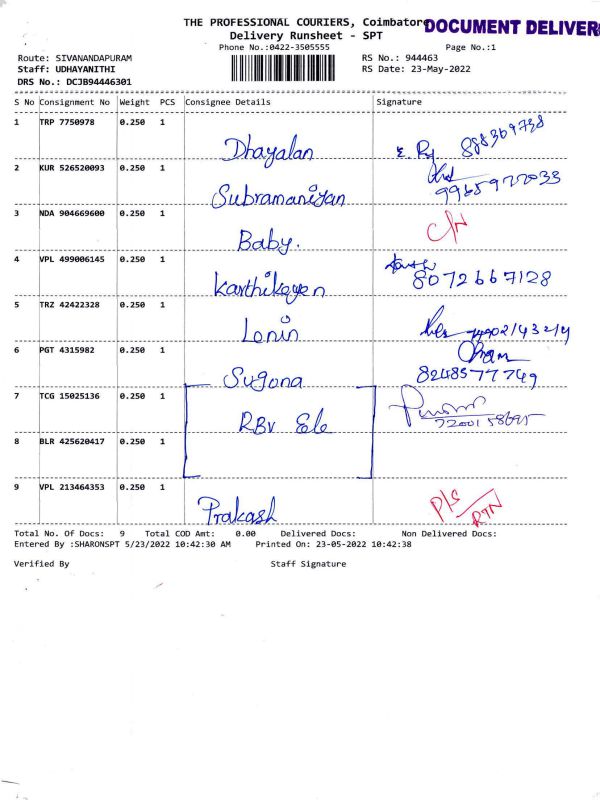 THE PROFESSIONAL COURIERS, Coimbatore
DOCUMENT DELIVER
Delivery Runsheet - SPT
Phone No.:0422-3505555
Page No.:1
Route: SIVANANDAPURAM
RS No.: 944463
Staff: UDHAYANITHI
RS Date: 23-May-2022
DRS No.: DCJB94446301
S No Consignment No Weight PCS Consignee Details Signature
1 TRP 7750978 0.250 1 Dhayalan
2 KUR 526520093 0.250 1 Subramaniyan 9965922033
3 NDA 904669600 0.250 1 Baby. C/N
4 VPL 499006145 0.250 1 Karthikeyen 8072667128
5 TRZ 42422328 0.250 1 Lenin
6 PGT 4315982 0.250 1 Sugona 8248577749
7 TCG 15025136 0.250 1 RBV Ele 7200158695
8 BLR 425620417 0.250 1
9 VPL 213464353 0.250 1 Prakash P/S RTN
Total No. Of Docs: 9 Total COD Amt: 0.00 Delivered Docs: Non Delivered Docs:
Entered By :SHARONSPT 5/23/2022 10:42:30 AM Printed On: 23-05-2022 10:42:38
Verified By Staff Signature